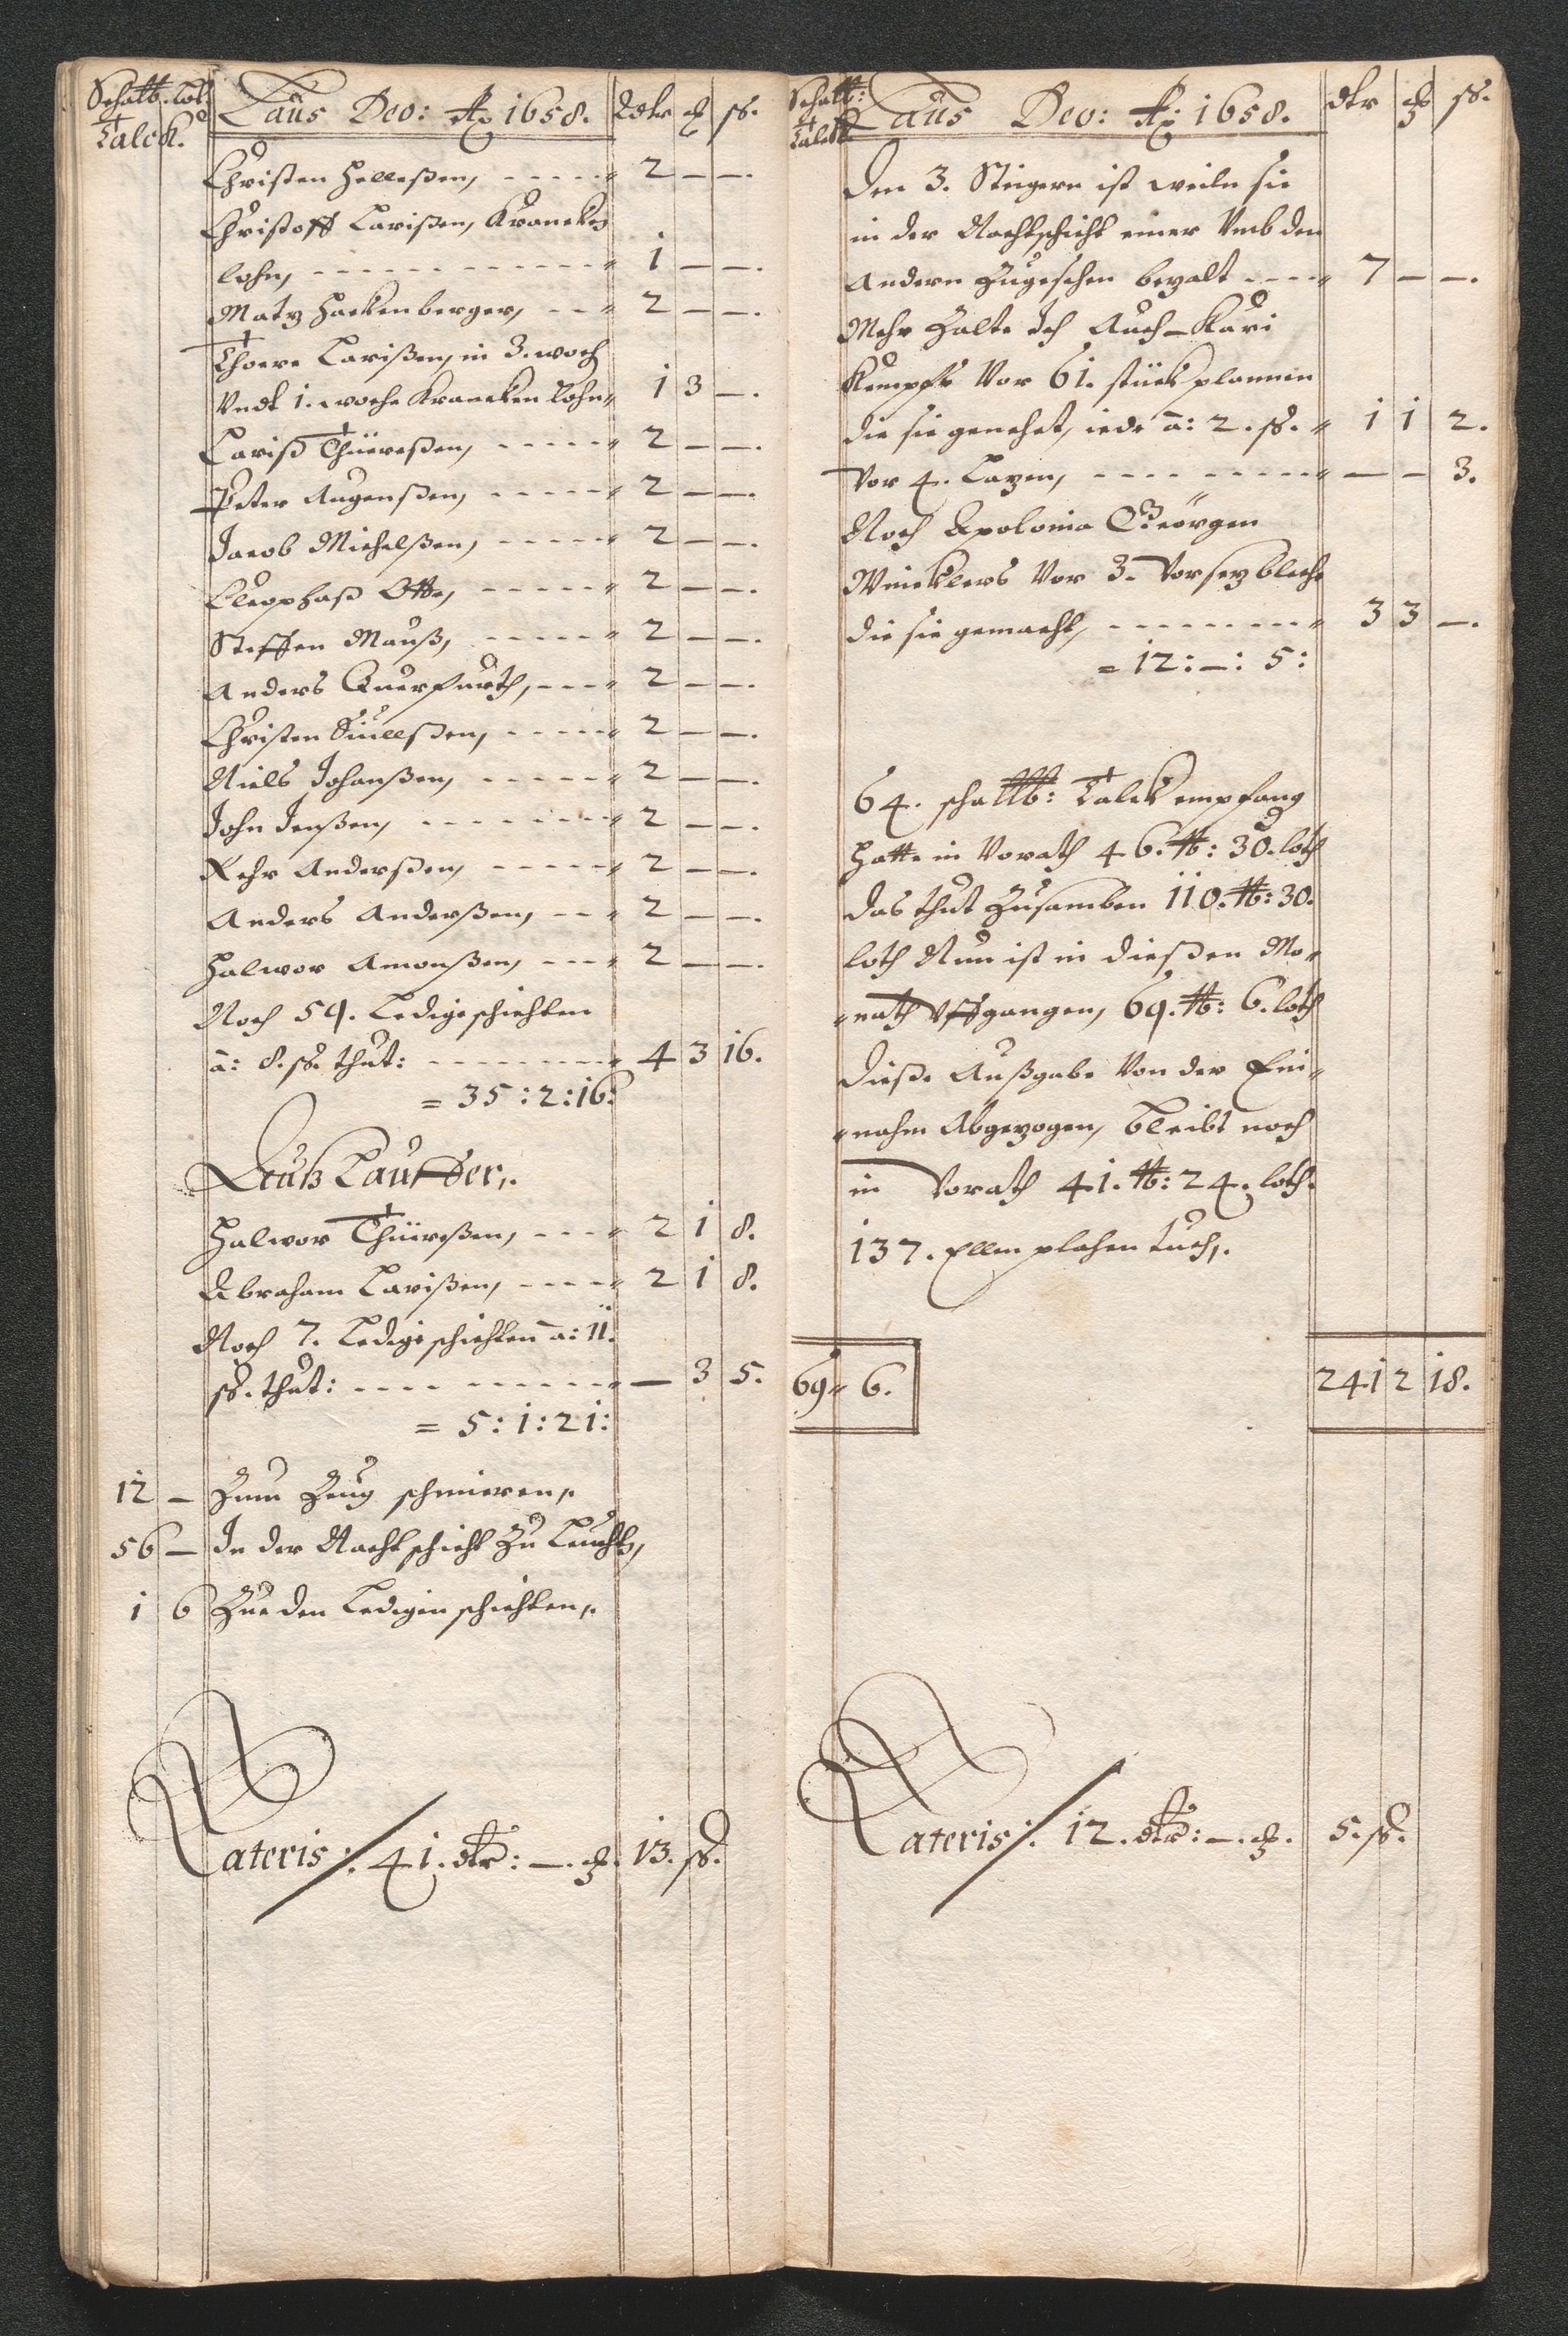 Schalb. lot.
Talck.
Laus Deo: Ao 1658. Rdtr ꝗ ß.
Christen Hellesßen, ----- 2 — —.
Christoff Larisßen, Krancken
lohn, ----- 1 — —.
Matz Hackenberger, --- 2 — —.
Thorre Larisßen, in 3. woch
Vndt 1. woche Krancken lohn, 1 3 —.
Lariß Thüresßen, ----- 2 — —.
Peter Augensßen, ----- 2 — —.
Jacob Michelsßen, ----- 2 — —.
Cleophaß Otte, ----- 2 — —.
Steffen Mauß, ----- 2 — —.
Anders Querfurth, --- 2 — —.
Christen ----- 2 — —.
Niels Johansßen, ----- 2 — —.
John Jensßen, ----- 2 — —.
Rehr Andersßen, ----- 2 — —.
Anders Andersßen, --- 2 — —.
Halwor Amonsßen, --- 2 — —.
Noch 59. Ledige schichten
â: 8. ß. thut: ----- 4 3 16.
= 35 : 2 : 16:
Lauffer,.
Halwor Thüresßen, --- 2 1 8.
Abraham Larisßen, ---- 2 1 8.
Noch 7. Ledige schichten â: 11.
ß. thut: ----- — 3 5.
= 5 : 1 : 21:
12 — Zum Zeug schmieren,.
56 — In der Nacht schicht Zu Leuchtē,
1 6 Zue den Ledigen schichten,.
Lateris ./. 41. dtr: —. ꝗ. 13. ß.
Schalb:
Talck
Laus Deo: Ao 1658. dtr ꝗ ß.
Den 3. Steigern ist weiln sie
in der Nachtschicht einer Vmb den
Andern Zugesehen bezalt ---- 7 — —.
Mehr Zalte Ich Auch Kari
Kempffs Vor 61. stück plannen
die sie genehet, iede â: 2. ß. 1 1 2.
Vor 4. ----- — — 3.
Noch Apolonia Geörgen
Wincklers Vor 3. Vorsez bleche
die sie gemacht, ----- 3 3 —.
= 12 : — : 5 :
64. schalb: Talck empfang
Hatte in Vorath 46. ℔: 30. loth
Das thut Zusamben 110. ℔: 30.
loth Nun ist in diesßen Mo-
-nath Vffgangen, 69. ℔: 6. loth
Diesße Außgabe Von der Ein-
-nahm Abgezogen, bleibt noch
in Vorath 41. ℔: 24. loth.
137. Ellen plahen tuch,.
69 6.
241 2 18.
Lateris ./. 12. dtr: —. ꝗ. 5. ß.